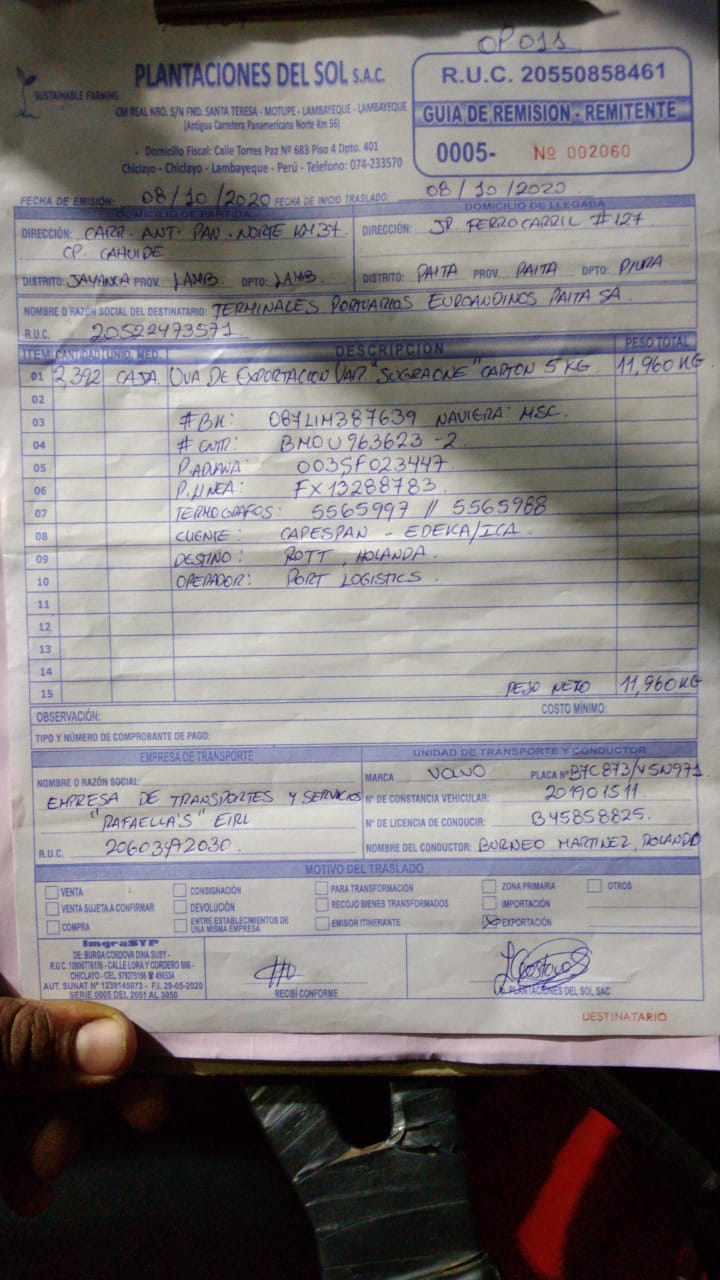 OP. 011
PLANTACIONES DEL SOL S.A.C.
SUSTAINABLE FARMING
CM REAL NRO. S/N FND. SANTA TERESA - MOTUPE - LAMBAYEQUE - LAMBAYEQUE
(Antigua Carretera Panamericana Norte Km 56)
- Domicilio Fiscal: Calle Torres Paz Nº 683 Piso 4 Dpto. 401
Chiclayo - Chiclayo - Lambayeque - Perú - Telefono: 074-233570
R.U.C. 20550858461
GUIA DE REMISION - REMITENTE
0005- Nº 002060
FECHA DE EMISIÓN: 08/10/2020 FECHA DE INICIO TRASLADO: 08/10/2020
DOMICILIO DE PARTIDA
DIRECCIÓN: CARR. ANT. PAN. NORTE KM 37.
CP. CAHUIDE
DISTRITO: JAYANCA PROV. LAMB. DPTO: LAMB.
DOMICILIO DE LLEGADA
DIRECCIÓN: JR FERROCARRIL # 127
DISTRITO: PAITA PROV. PAITA DPTO: PIURA
NOMBRE O RAZÓN SOCIAL DEL DESTINATARIO: TERMINALES PORTUARIOS EUROANDINOS PAITA SA.
R.U.C. 20522473571
ITEM CANTIDAD UNID. MED. DESCRIPCION PESO TOTAL
01 2,392 CAJA. UVA DE EXPORTACION VAR. "SUGRAONE" CARTON 5 KG. 11,960 KG
02
03 # BK: 087LIM387639 NAVIERA: MSC.
04 # CNTR: BMOU 963623-2
05 P. ADUANA: 003SF023447.
06 P. LINEA: FX13288783.
07 TERMOGRAFOS: 5565997 // 5565988
08 CLIENTE: CAPESPAN - EDEKA/ICA.
09 DESTINO: ROTT, HOLANDA.
10 OPERADOR: PORT LOGISTICS.
11
12
13
14
15 PESO NETO 11,960 KG
OBSERVACIÓN: COSTO MÍNIMO:
TIPO Y NÚMERO DE COMPROBANTE DE PAGO:
EMPRESA DE TRANSPORTE
NOMBRE O RAZÓN SOCIAL:
EMPRESA DE TRANSPORTES Y SERVICIOS
"RAFAELLA'S" EIRL
R.U.C.
UNIDAD DE TRANSPORTE Y CONDUCTOR
MARCA VOLVO PLACA Nº B7C873/V5N971
Nº DE CONSTANCIA VEHICULAR:
Nº DE LICENCIA DE CONDUCIR: B45858825.
NOMBRE DEL CONDUCTOR: BURNEO MARTINEZ, ROLANDO
MOTIVO DEL TRASLADO
VENTA CONSIGNACIÓN PARA TRANSFORMACIÓN ZONA PRIMARIA OTROS
VENTA SUJETA A CONFIRMAR DEVOLUCIÓN RECOJO BIENES TRANSFORMADOS IMPORTACIÓN
COMPRA ENTRE ESTABLECIMIENTOS DE UNA MISMA EMPRESA EMISOR ITINERANTE EXPORTACIÓN
ImgraSYP
DE: BURGA CORDOVA DINA SUSY -
CALLE LORA Y CORDERO
CHICLAYO - CEL.
AUT. SUNAT Nº 1239145073 - F.I. 29-05-2020
SERIE 0005 DEL 2051 AL 3050
RECIBÍ CONFORME
P. PLANTACIONES DEL SOL SAC
DESTINATARIO